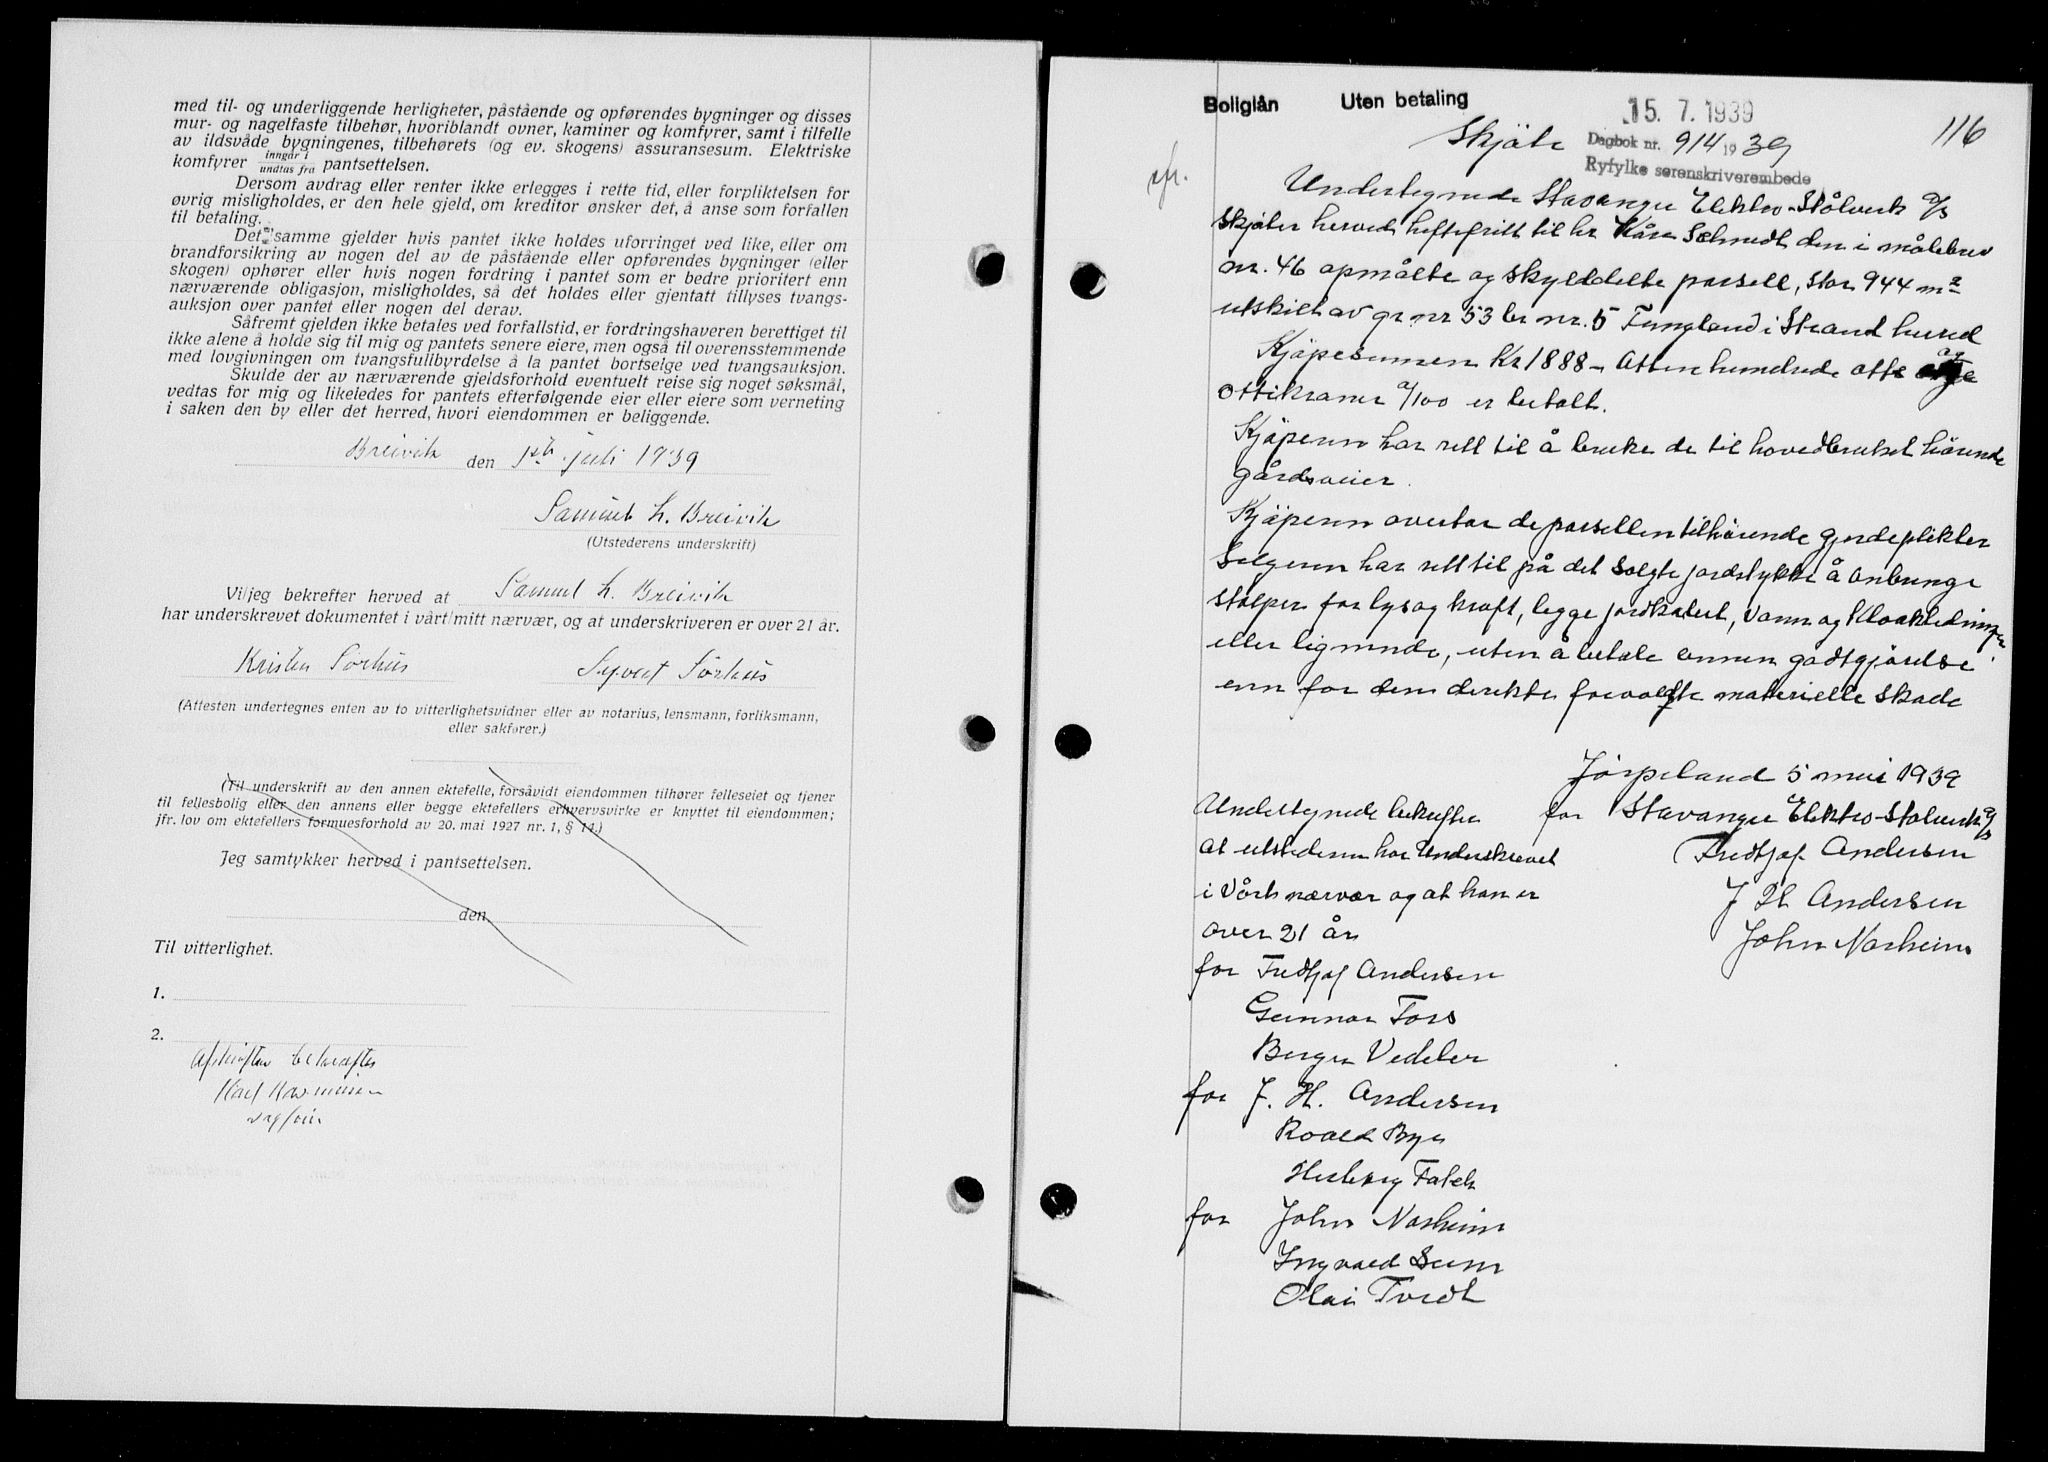 med til- og underliggende herligheter, påstående og opførendes bygninger og disses
mur- og nagelfaste tilbehør, hvoriblandt ovner, kaminer og komfyrer, samt i tilfelle
av ildsvåde bygningenes, tilbehørets (og ev. skogens) assuransesum. Elektriske
komfyrer inngår i / undtas fra pantsettelsen.
Dersom avdrag eller renter ikke erlegges i rette tid, eller forpliktelsen for
øvrig misligholdes, er den hele gjeld, om kreditor ønsker det, å anse som forfallen
til betaling.
Det samme gjelder hvis pantet ikke holdes uforringet ved like, eller om
brandforsikring av nogen del av de påstående eller opførendes bygninger (eller
skogen) ophører eller hvis nogen fordring i pantet som er bedre prioritert enn
nærværende obligasjon, misligholdes, så det holdes eller gjentatt tillyses tvangs-
auksjon over pantet eller nogen del derav.
Såfremt gjelden ikke betales ved forfallstid, er fordringshaveren berettiget til
ikke alene å holde sig til mig og pantets senere eiere, men også til overensstemmende
med lovgivningen om tvangsfullbyrdelse å la pantet bortselge ved tvangsauksjon.
Skulde der av nærværende gjeldsforhold eventuelt reise sig noget søksmål,
vedtas for mig og likeledes for pantets efterfølgende eier eller eiere som verneting
i saken den by eller det herred, hvori eiendommen er beliggende.
Breivik den 1ste juli 1939
Samuel L. Breivik
(Utstederens underskrift)
Vi/jeg bekrefter herved at Samuel L. Breivik
har underskrevet dokumentet i vårt/mitt nærvær, og at underskriveren er over 21 år.
Kristen Sørhus Syvert Sørhus
(Attesten undertegnes enten av to vitterlighetsvidner eller av notarius, lensmann, forliksmann,
eller sakfører.)
(Til underskrift av den annen ektefelle, forsåvidt eiendommen tilhører felleseiet og tjener
til fellesbolig eller den annens eller begge ektefellers erhvervsvirke er knyttet til eiendommen;
jfr. lov om ektefellers formuesforhold av 20. mai 1927 nr. 1, § 14.)
Jeg samtykker herved i pantsettelsen.
den
Til vitterlighet.
1.
2.
Afskriften bekræftes
Karl Rasmussen
sagfører
Boliglån Uten betaling
15. 7. 1939
116
Skjöte
Dagbok nr. 914 1939
Ryfylke sorenskriverembede
Undertegnede Stavanger Elektro-Stålverk A/S
skjøter herved heftefritt til hr Kåre Schmidt den i målebrev
nr. 46 opmålte og skylddelte parsell, stor 944 m2
utskilt av gr nr 53 br nr. 5 Fungland i Strand herred
Kjöpesumen Kr 1888 - Atten hundrede otte og
ottikroner 0/100 er betalt.
Kjöperen har rett til å bruke de til hovedbruket hörende
gårdsveier.
Kjöperen overtar de parsellen tilhörende gjerdeplikter
Selgeren har rett til på det solgte jordstykke å anbringe
stolper for lys og kraft, legge jordkabel, vann og kloakledninger
eller lignende, uten å betale annen godtgjörelse
enn for den direkte forvoldte materielle skade
Jörpeland 5 mai 1939
for Stavanger Elektro-Stalverk A/S
Fredtjof Andersen
J H Andersen
John Norheim
Undertegnede bekrefter
at utstederen har underskrevet
i vårt nærvær og at han er
over 21 år
for Fredtjof Andersen
Gunnar Fors
Birger Vedeler
for J. H. Andersen
Roald Bye
Herberg Falck
for John Norheim
Ingvald Seim
Olai Tvedt